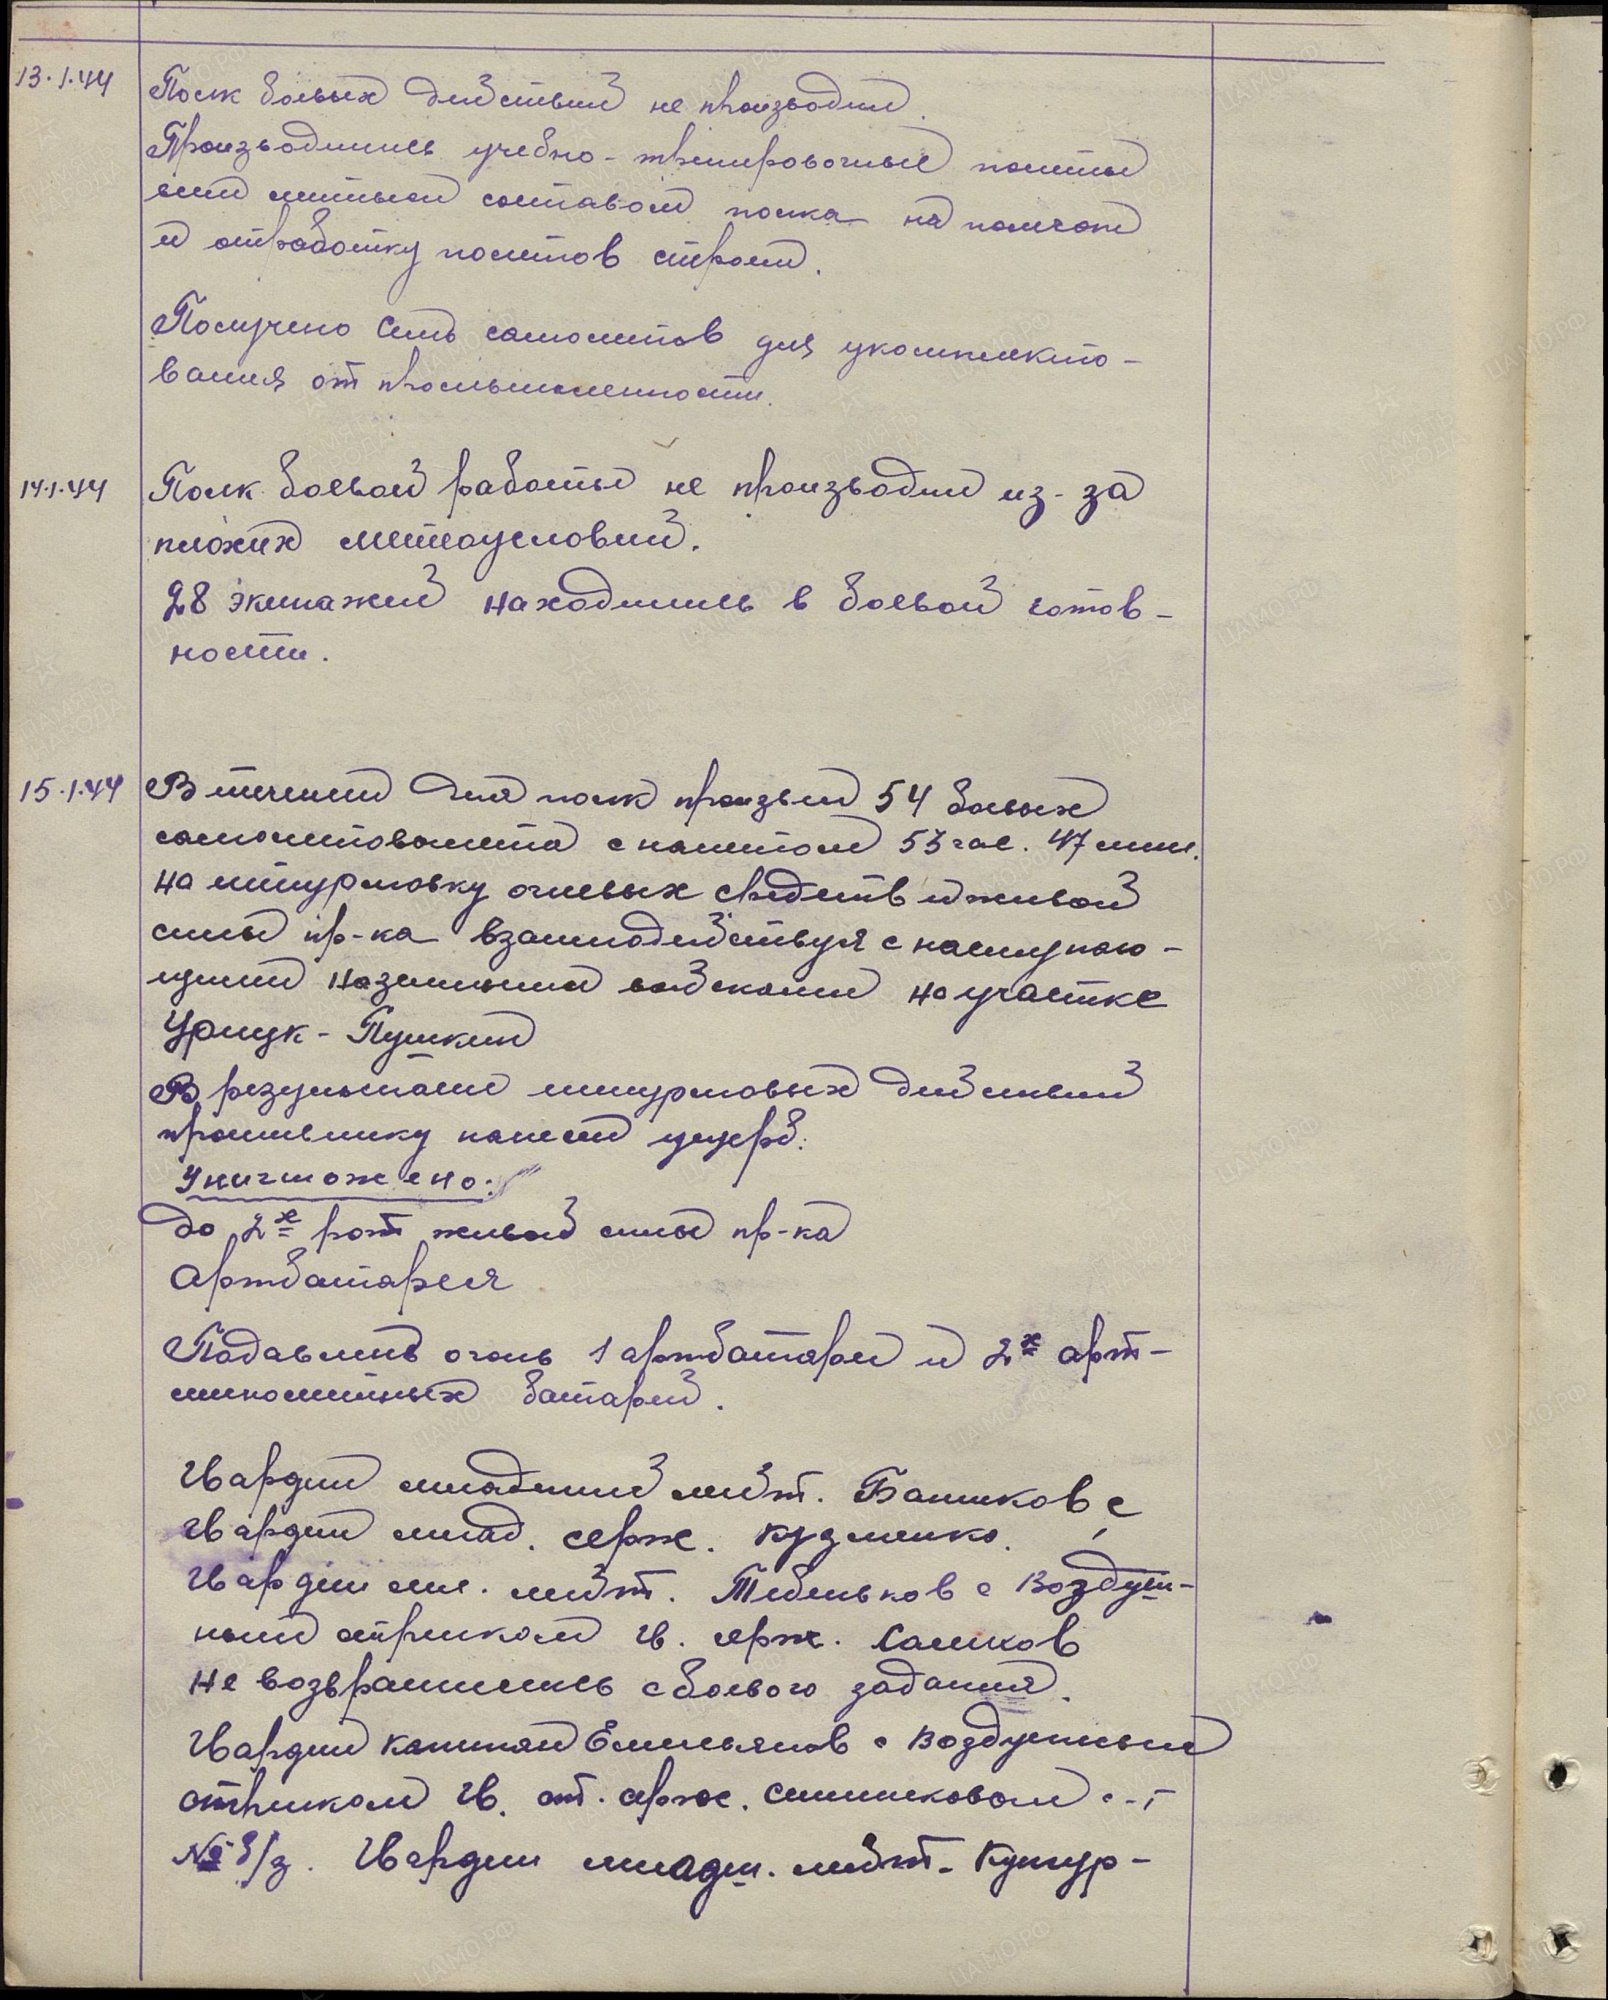 13.1.44 Полк боевых действий не производил.
Производились учебно-тренировочные полеты
летным составом полка на полигон
и отработку полетов строем.
Получено семь самолетов для укомплекто-
вания от промышленности.
14.1.44 Полк боевой работы не производил из-за
плохих метеоусловий.
28 экипажей находились в боевой готов-
ности.
15.1.44 В течении дня полк произвел 54 боевых
самолетовылета с налетом 53 час. 47 мин.
на штурмовку огневых средств и живой
силы пр-ка взаимодействуя с наступаю-
щими наземными войсками на участке
Урицк - Пушкин
В результате штурмовых действий
противнику нанесен ущерб:
Уничтожено:
до 2х рот живой силы пр-ка
Артбатарея
Подавлено огонь 1 артбатареи и 2х арт-
минометных батарей.
Гвардии младший лейт. Башков с
гвардии млад. серж. Кузменко.
Гвардии мл. лейт. Тебеньков с воздуш-
ным стрелком гв. серж. Салихов
не возвратились с боевого задания.
Гвардии капитан Емельянов с воздушным
стрелком гв. ст. серж. Синишковом
№ в/з. Гвардии младш. лейт. Кунгур-